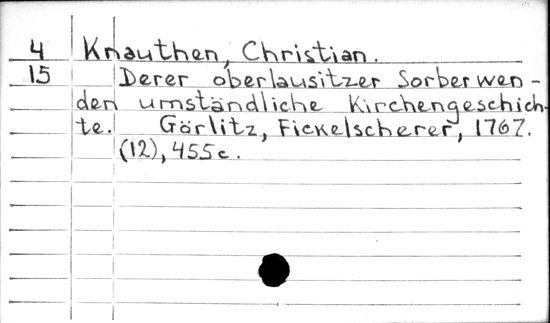 4 Knauthen, Christian.
15 Derer oberlausitzer Sorberwen-
den umständliche Kirchengeschich-
te. Görlitz, Fickelscherer, 1767.
(12), 455c.